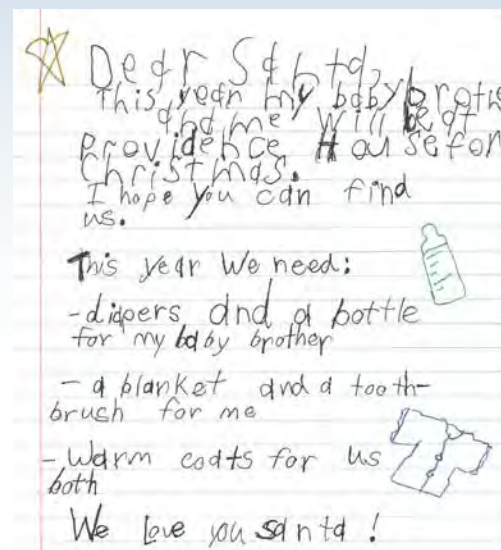 Dear Santa,
This year my baby brothe
and me will be at
Providence House for
Christmas.
I hope you can find
us.
This year we need:
-diapers and a bottle
for my baby brother
- a blanket and a tooth-
brush for me
- Warm coats for us
both
We Love you santa !